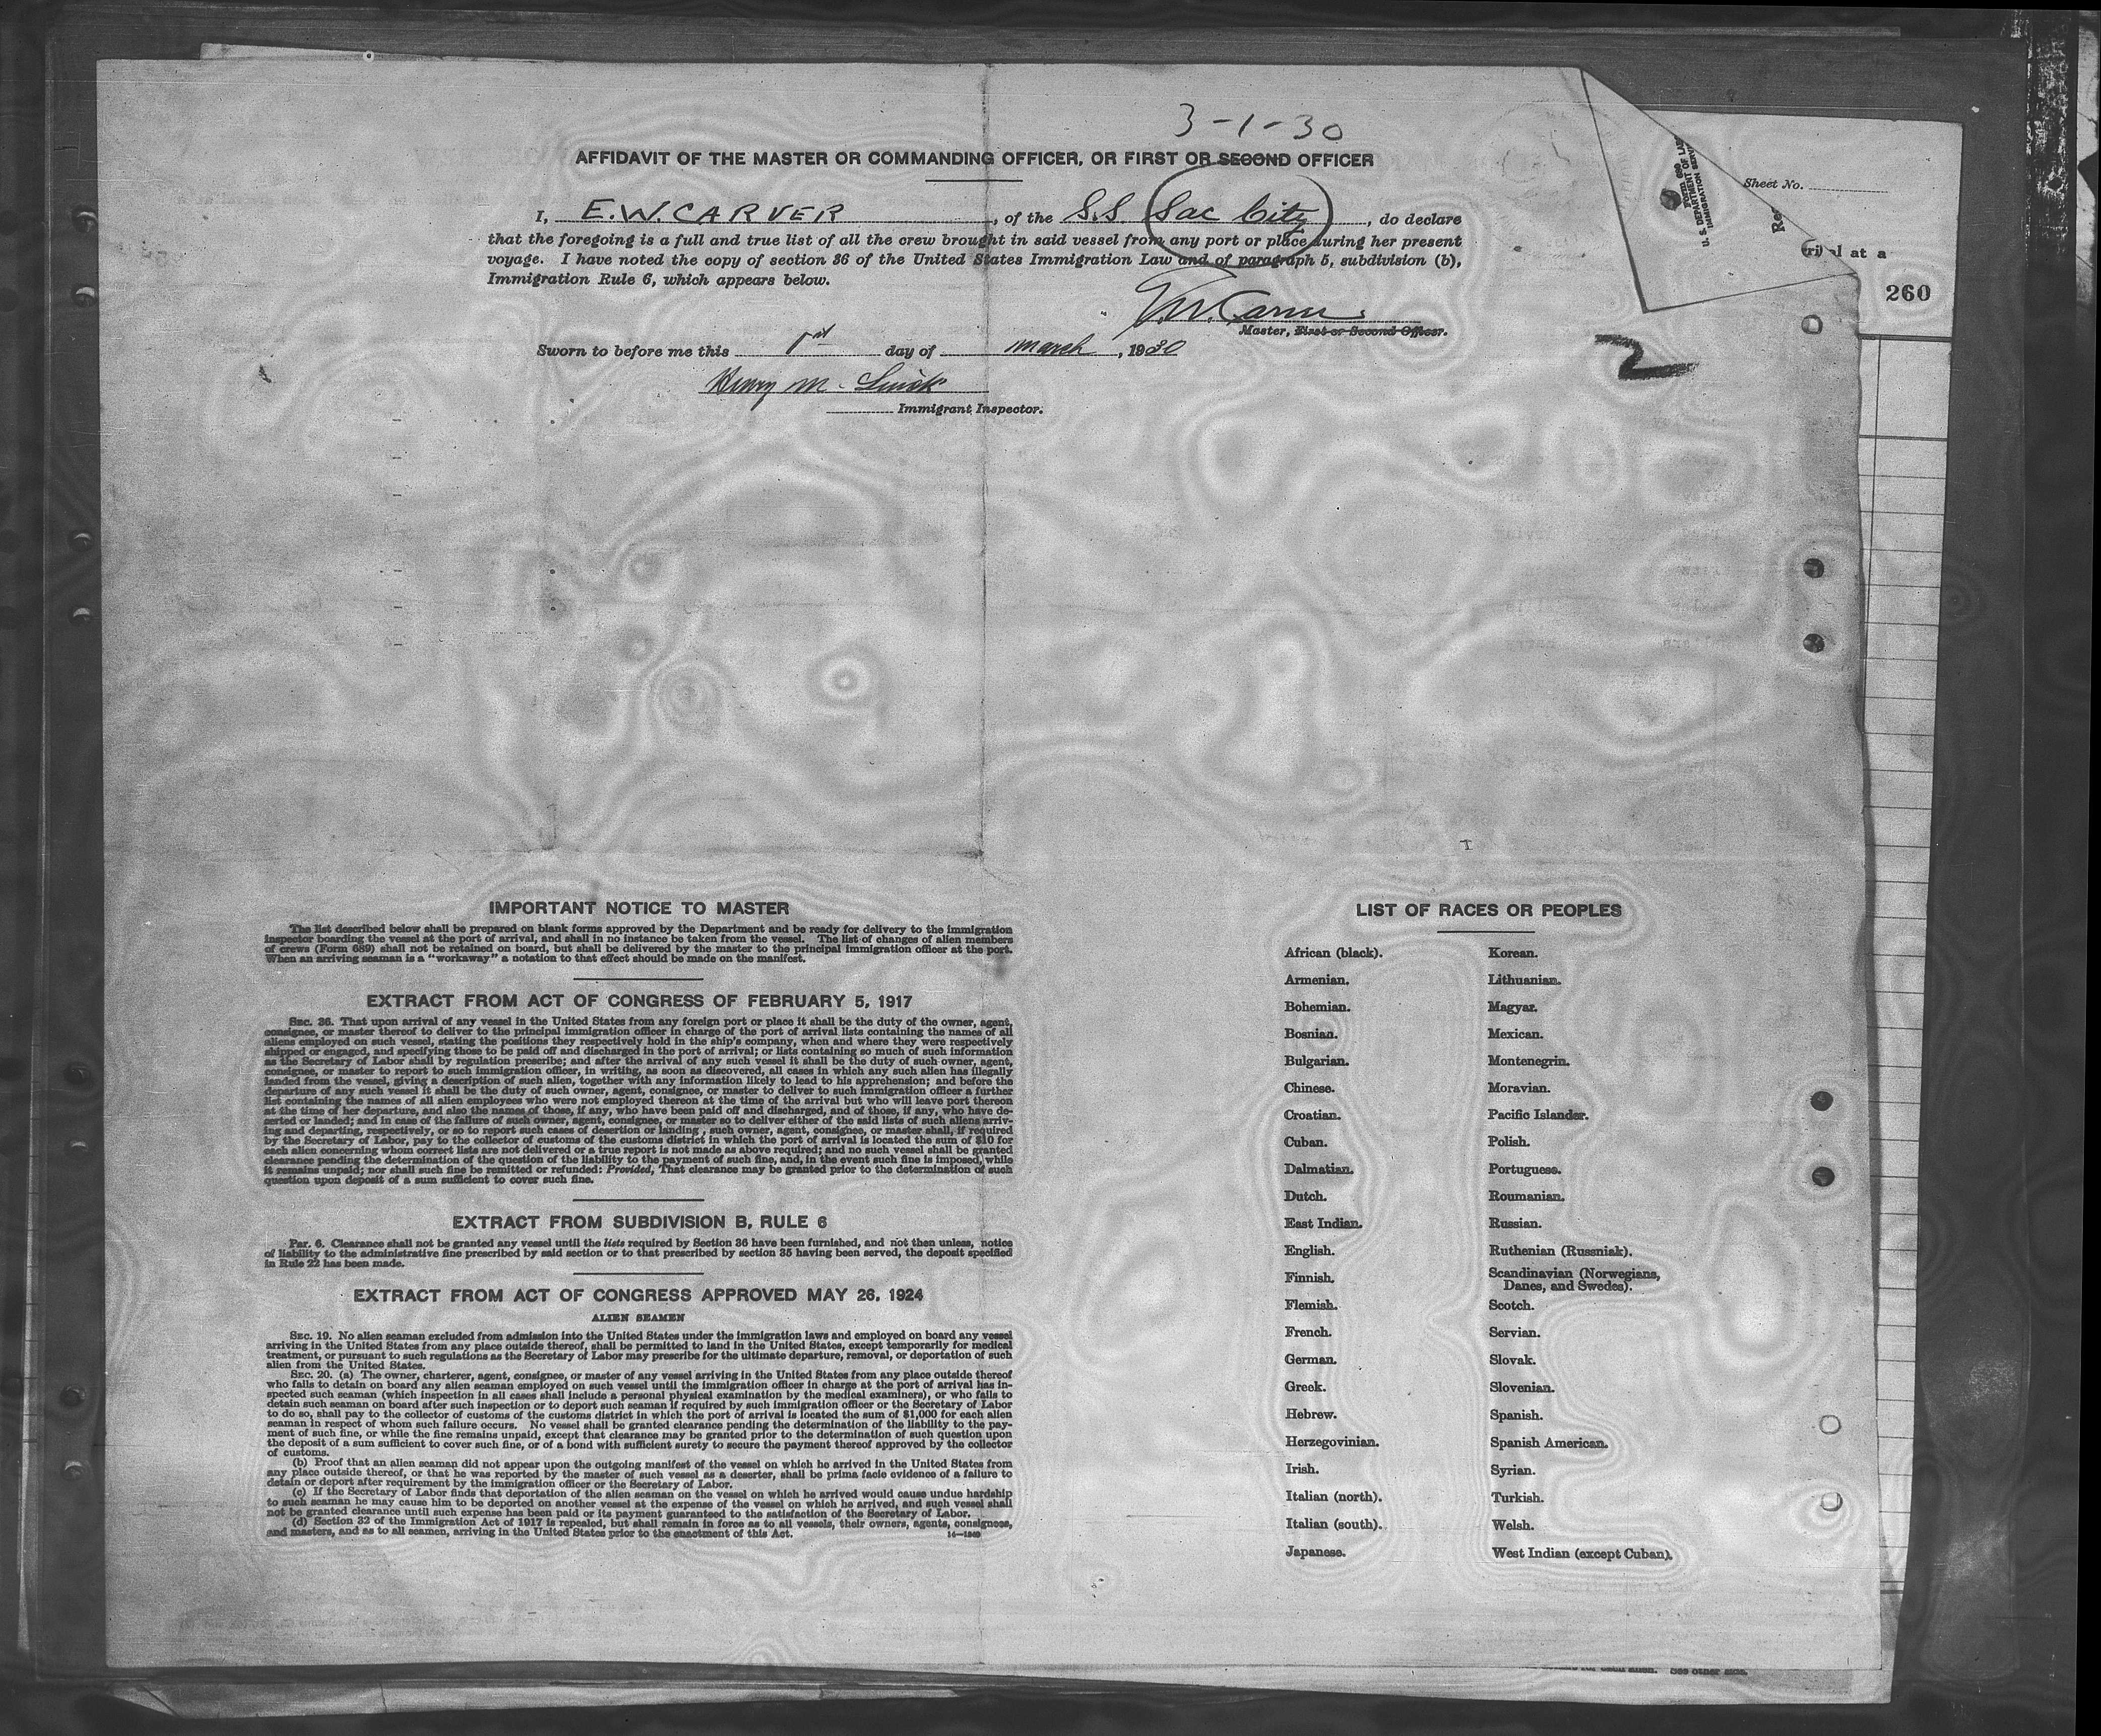 3-1-30
AFFIDAVIT OF THE MASTER OR COMMANDING OFFICER, OR FIRST OR SECOND OFFICER
I, E.W. CARVER, of the S.S. Sac City, do declare
that the foregoing is a full and true list of all the crew brought in said vessel from any port or place during her present
voyage. I have noted the copy of section 36 of the United States Immigration Law and of paragraph 5, subdivision (b),
Immigration Rule 6, which appears below.
E.W. Carver
Master, First or Second Officer.
Sworn to before me this 1st day of march, 1930
Henry M.
Immigrant Inspector.
Sheet No.
U. S. DEPARTMENT OF LA
IMMIGRATION SERV
al at a
260
2
IMPORTANT NOTICE TO MASTER
The list described below shall be prepared on blank forms approved by the Department and be ready for delivery to the immigration
inspector boarding the vessel at the port of arrival, and shall in no instance be taken from the vessel. The list of changes of alien members
of crews (Form 689) shall not be retained on board, but shall be delivered by the master to the principal immigration officer at the port.
When an arriving seaman is a "workaway" a notation to that effect should be made on the manifest.
EXTRACT FROM ACT OF CONGRESS OF FEBRUARY 5, 1917
SEC. 36. That upon arrival of any vessel in the United States from any foreign port or place it shall be the duty of the owner, agent,
consignee, or master thereof to deliver to the principal immigration officer in charge of the port of arrival lists containing the names of all
aliens employed on such vessel, stating the positions they respectively hold in the ship's company, when and where they were respectively
shipped or engaged, and specifying those to be paid off and discharged in the port of arrival; or lists containing so much of such information
as the Secretary of Labor shall by regulation prescribe; and after the arrival of any such vessel it shall be the duty of such owner, agent,
consignee, or master to report to such immigration officer, in writing, as soon as discovered, all cases in which any such alien has illegally
landed from the vessel, giving a description of such alien, together with any information likely to lead to his apprehension; and before the
departure of any such vessel it shall be the duty of such owner, agent, consignee, or master to deliver to such immigration officer a further
list containing the names of all alien employees who were not employed thereon at the time of the arrival but who will leave port thereon
at the time of her departure, and also the names of those, if any, who have been paid off and discharged, and of those, if any, who have de-
serted or landed; and in case of the failure of such owner, agent, consignee, or master so to deliver either of the said lists of such aliens arriv-
ing and departing, respectively, or so to report such cases of desertion or landing, such owner, agent, consignee, or master shall, if required
by the Secretary of Labor, pay to the collector of customs of the customs district in which the port of arrival is located the sum of $10 for
each alien concerning whom correct lists are not delivered or a true report is not made as above required; and no such vessel shall be granted
clearance pending the determination of the question of the liability to the payment of such fine, and, in the event such fine is imposed, while
it remains unpaid; nor shall such fine be remitted or refunded: Provided, That clearance may be granted prior to the determination of such
question upon deposit of a sum sufficient to cover such fine.
EXTRACT FROM SUBDIVISION B, RULE 6
Par. 6. Clearance shall not be granted any vessel until the lists required by Section 36 have been furnished, and not then unless, notice
of liability to the administrative fine prescribed by said section or to that prescribed by section 35 having been served, the deposit specified
in Rule 22 has been made.
EXTRACT FROM ACT OF CONGRESS APPROVED MAY 26, 1924
ALIEN SEAMEN
SEC. 19. No alien seaman excluded from admission into the United States under the immigration laws and employed on board any vessel
arriving in the United States from any place outside thereof, shall be permitted to land in the United States, except temporarily for medical
treatment, or pursuant to such regulations as the Secretary of Labor may prescribe for the ultimate departure, removal, or deportation of such
alien from the United States.
SEC. 20. (a) The owner, charterer, agent, consignee, or master of any vessel arriving in the United States from any place outside thereof
who fails to detain on board any alien seaman employed on such vessel until the immigration officer in charge at the port of arrival has in-
spected such seaman (which inspection in all cases shall include a personal physical examination by the medical examiners), or who fails to
detain such seaman on board after such inspection or to deport such seaman if required by such immigration officer or the Secretary of Labor
to do so, shall pay to the collector of customs of the customs district in which the port of arrival is located the sum of $1,000 for each alien
seaman in respect of whom such failure occurs. No vessel shall be granted clearance pending the determination of the liability to the pay-
ment of such fine, or while the fine remains unpaid, except that clearance may be granted prior to the determination of such question upon
the deposit of a sum sufficient to cover such fine, or of a bond with sufficient surety to secure the payment thereof approved by the collector
of customs.
(b) Proof that an alien seaman did not appear upon the outgoing manifest of the vessel on which he arrived in the United States from
any place outside thereof, or that he was reported by the master of such vessel as a deserter, shall be prima facie evidence of a failure to
detain or deport after requirement by the immigration officer or the Secretary of Labor.
(c) If the Secretary of Labor finds that deportation of the alien seaman on the vessel on which he arrived would cause undue hardship
to such seaman he may cause him to be deported on another vessel at the expense of the vessel on which he arrived, and such vessel shall
not be granted clearance until such expense has been paid or its payment guaranteed to the satisfaction of the Secretary of Labor.
(d) Section 32 of the Immigration Act of 1917 is repealed, but shall remain in force as to all vessels, their owners, agents, consignees,
and masters, and as to all seamen, arriving in the United States prior to the enactment of this Act.
LIST OF RACES OR PEOPLES
African (black).
Armenian.
Bohemian.
Bosnian.
Bulgarian.
Chinese.
Croatian.
Cuban.
Dalmatian.
Dutch.
East Indian.
English.
Finnish.
Flemish.
French.
German.
Greek.
Hebrew.
Herzegovinian.
Irish.
Italian (north).
Italian (south).
Japanese.
Korean.
Lithuanian.
Magyar.
Mexican.
Montenegrin.
Moravian.
Pacific Islander.
Polish.
Portuguese.
Roumanian.
Russian.
Ruthenian (Russniak).
Scandinavian (Norwegians,
Danes, and Swedes).
Scotch.
Servian.
Slovak.
Slovenian.
Spanish.
Spanish American.
Syrian.
Turkish.
Welsh.
West Indian (except Cuban).
See other side.